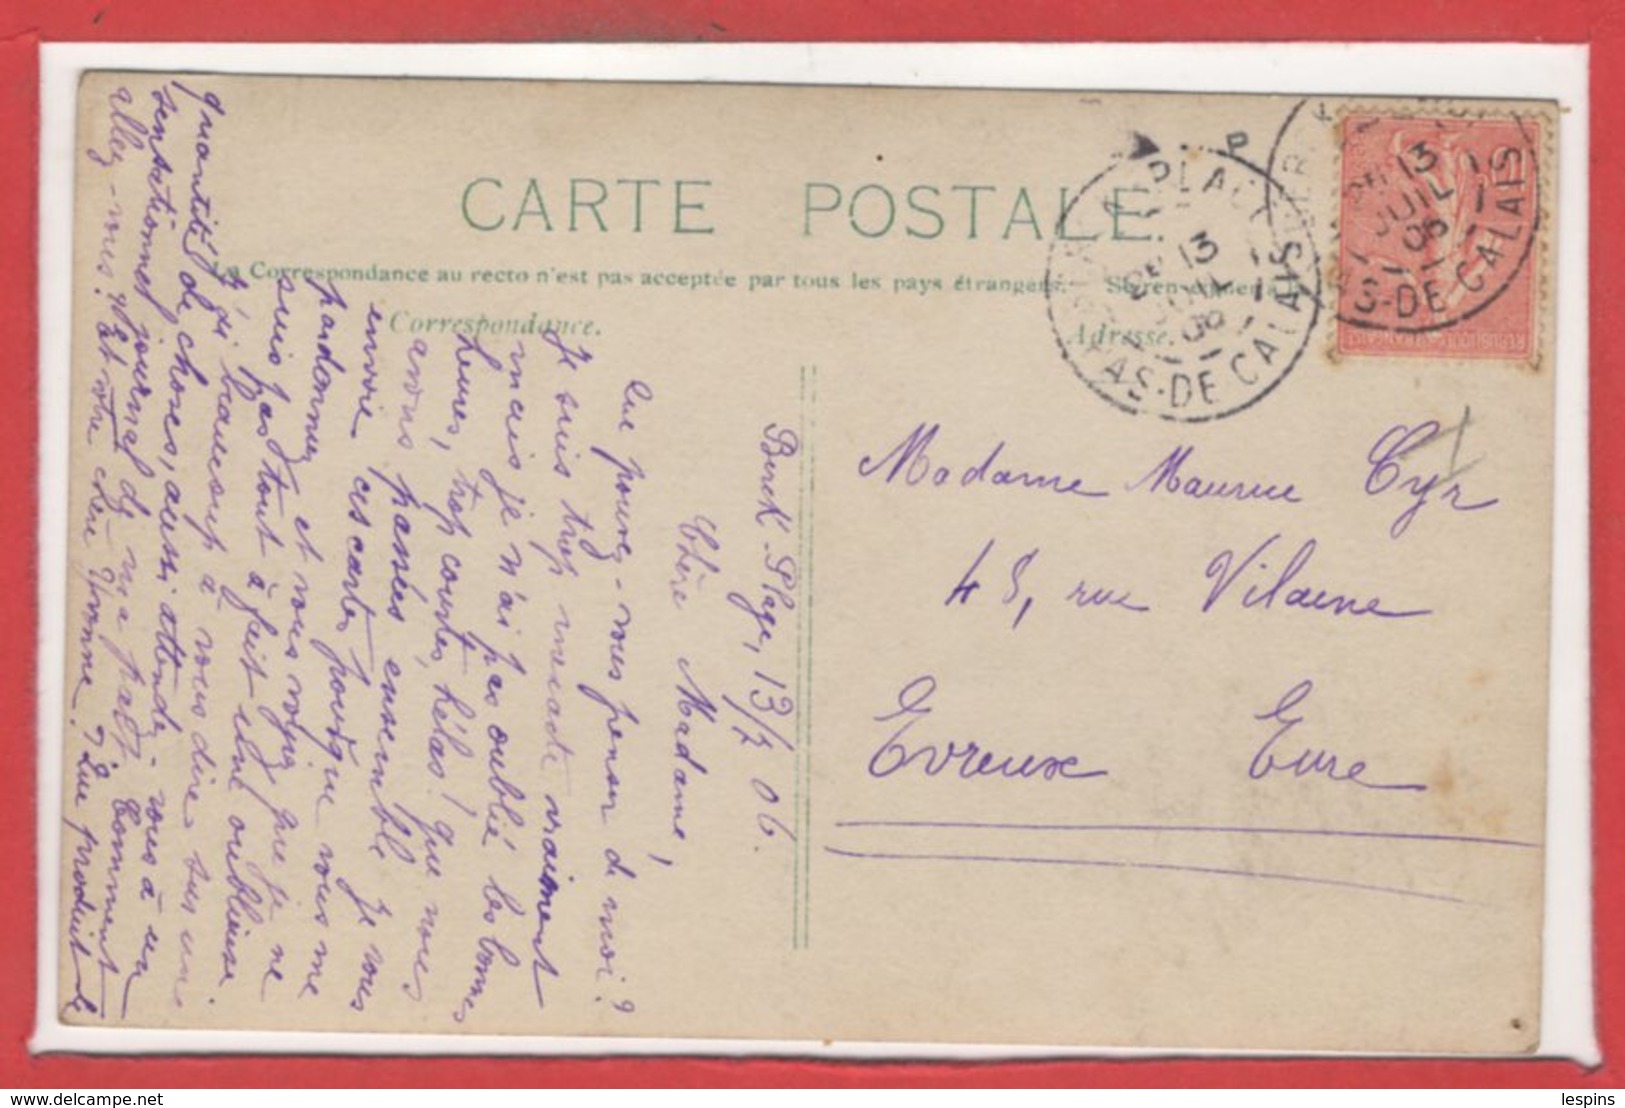 CARTE POSTALE
La Correspondance au recto n'est pas acceptée par tous les pays étrangers.
Correspondance.
Adresse.
BERCK-PLAGE
13
JUIL
06
PAS-DE-CALAIS
13
JUIL
06
PAS-DE CALAIS
REPUBLIQUE FRANÇAISE
Madame Maurice Cyr
45, rue Vilaine
Evreux Eure
Berck Plage, 13/7 06.
Chère Madame,
Que pouvez-vous penser de moi?
Je suis trop ingrate vraiment
mais je n'ai pas oublié les bonnes
heures, trop courtes, hélas! que nous
avons passées ensemble. Je vous
envoie ces cartes pour que vous me
pardonniez et vous voyez que je ne
suis pas tout à fait une oublieuse.
J'ai beaucoup à vous dire sur une
quantité de choses, aussi attendez-vous à un
sensationnel journal de ma part. Comment
allez-vous? Et votre chère Yvonne? Que produit le
lespins